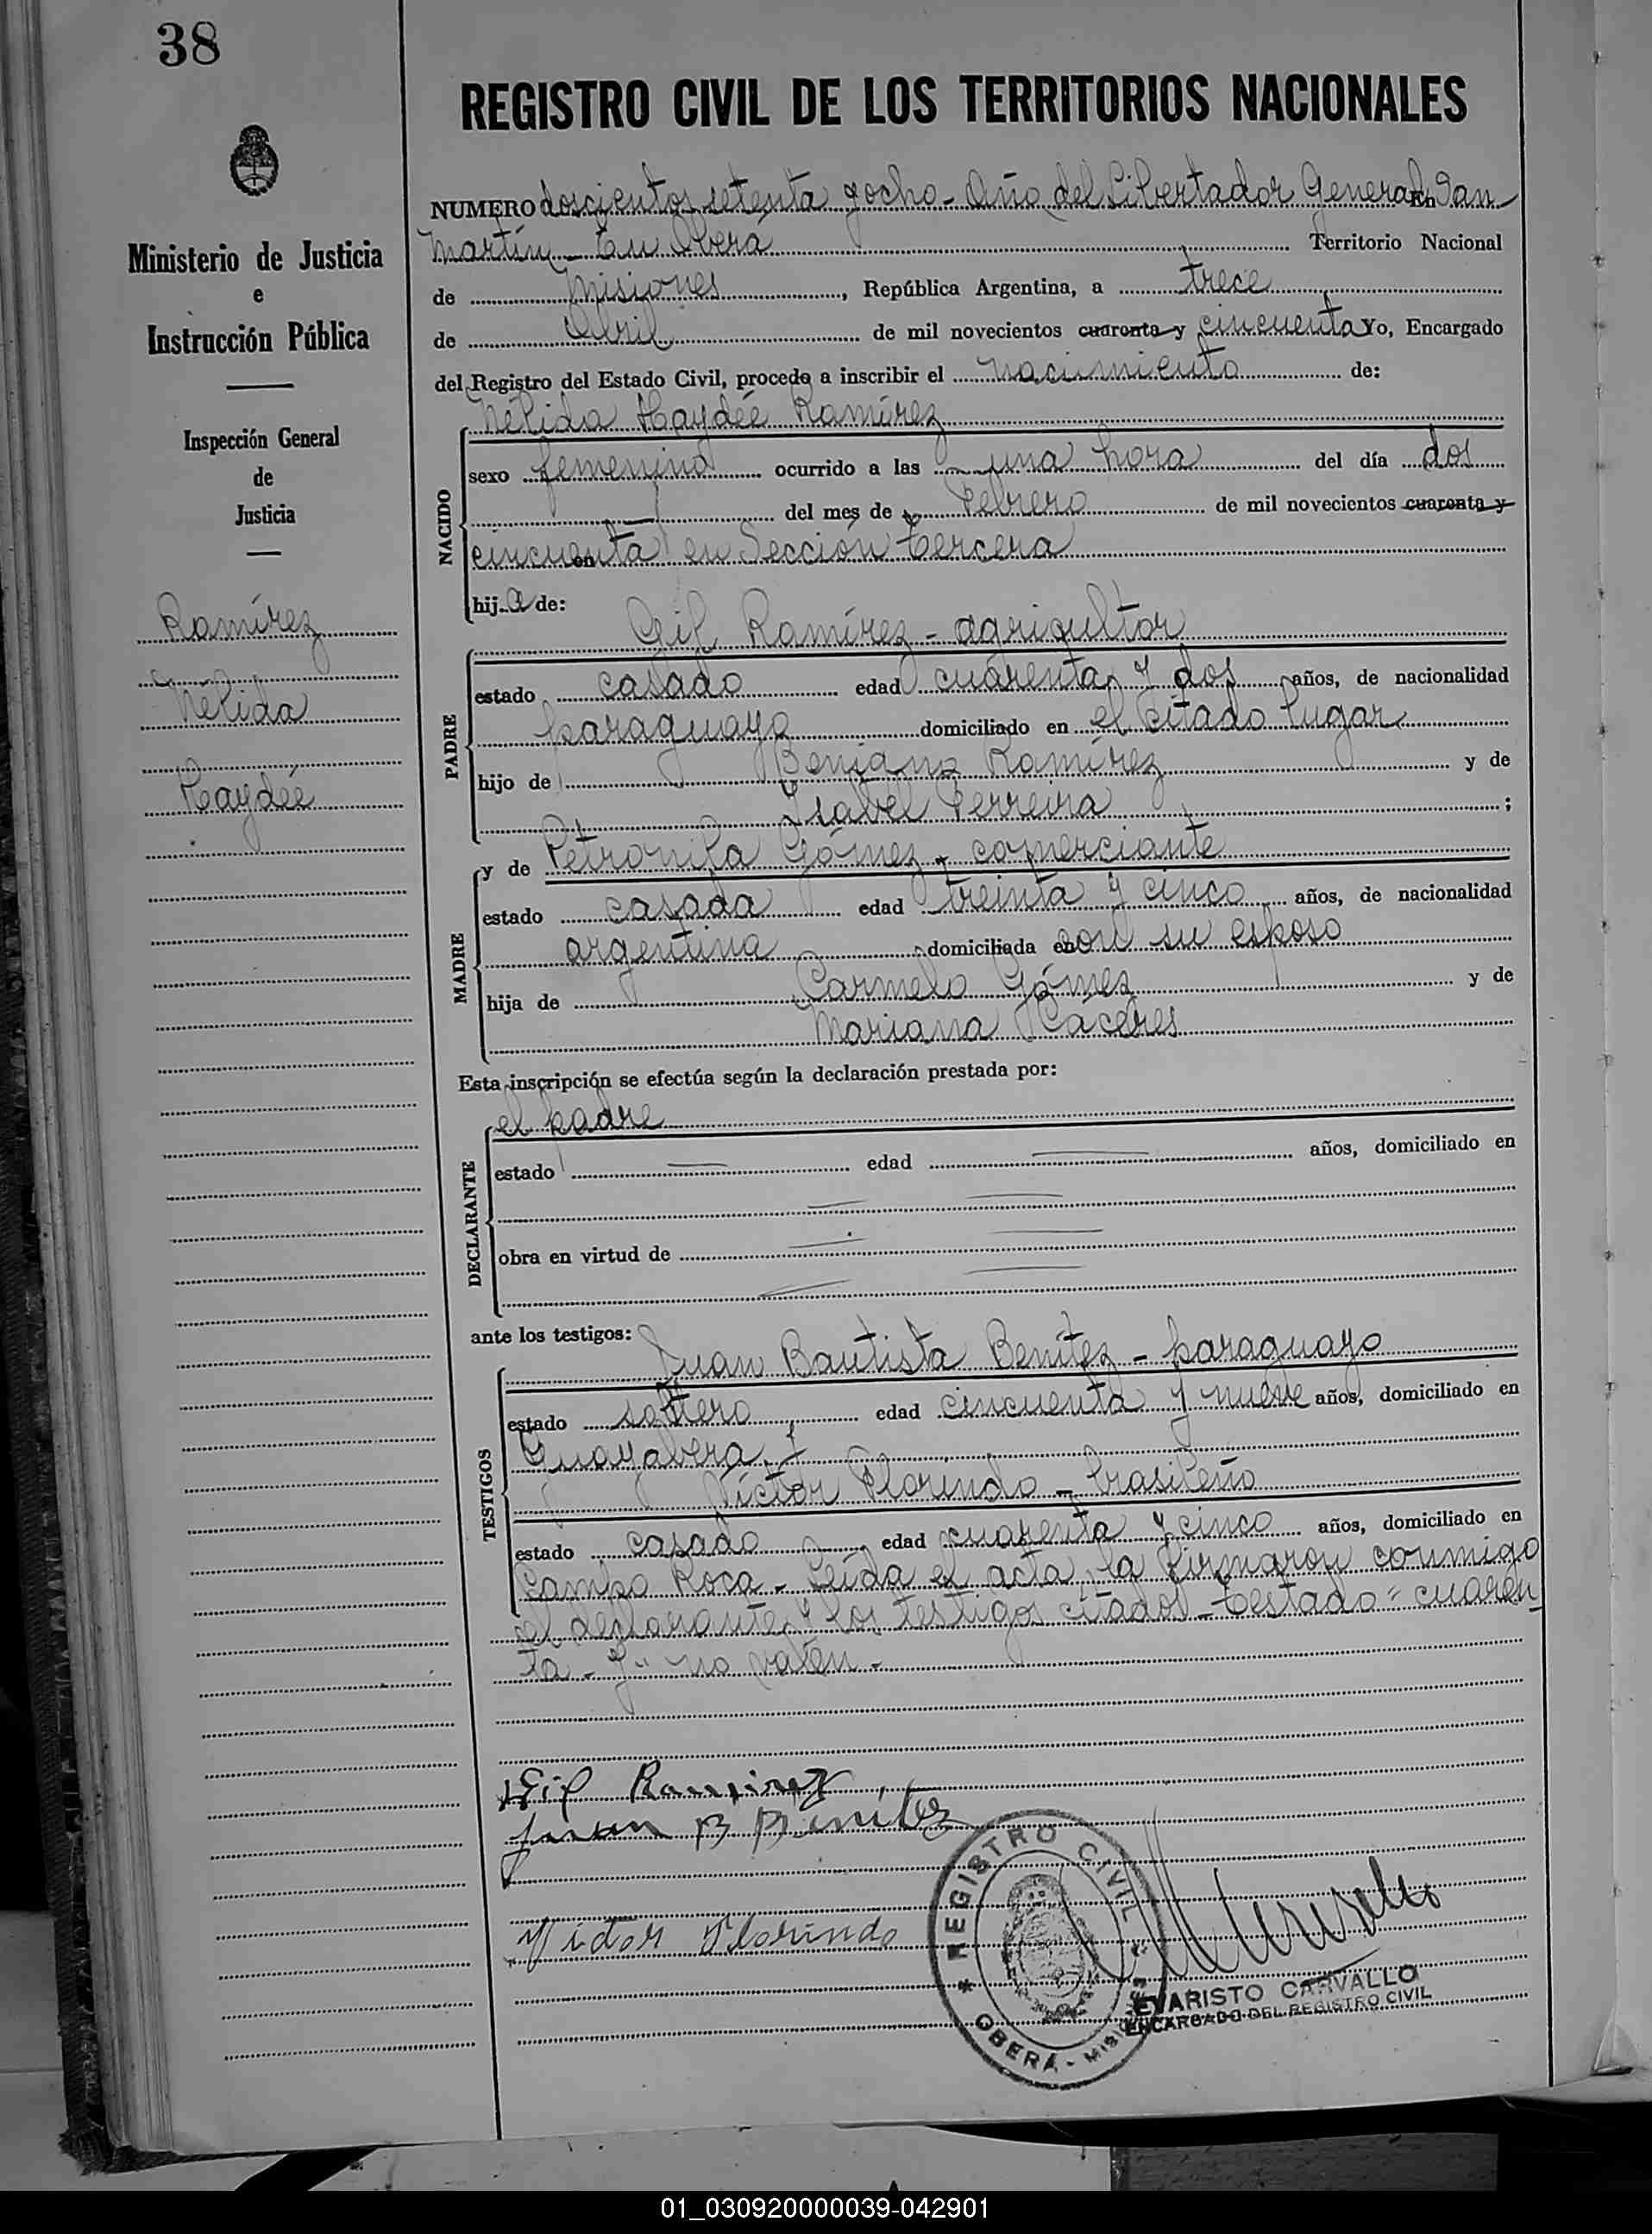 38
REGISTRO CIVIL DE LOS TERRITORIOS NACIONALES
Ministerio de Justicia
e
Instrucción Pública
Inspección General
de
Justicia
Ramírez
Nélida
Haydée
NUMERO doscientos setenta y ocho - Año del Libertador General En San
Martín - En Oberá Territorio Nacional
de Misiones, República Argentina, a trece
de Abril de mil novecientos cuarenta y cincuenta Yo, Encargado
del Registro del Estado Civil, procedo a inscribir el nacimiento de:
Nélida Haydée Ramírez
NACIDO
sexo femenino ocurrido a las una hora del día dos
del mes de Febrero de mil novecientos cuarenta y
cincuenta en en Sección tercera
hija de:
Gil Ramírez - agricultor
PADRE
estado casado edad cuarenta y dos años, de nacionalidad
paraguayo domiciliado en el citado lugar
hijo de Benigno Ramírez y de
Isabel Ferreira ;
y de Petronila Gómez - comerciante
MADRE
estado casada edad treinta y cinco años, de nacionalidad
argentina domiciliada en con su esposo
hija de Carmelo Gómez y de
Mariana Cáceres
Esta inscripción se efectúa según la declaración prestada por:
el padre
DECLARANTE
estado edad años, domiciliado en
obra en virtud de
ante los testigos:
Juan Bautista Benítez - paraguayo
TESTIGOS
estado soltero edad cincuenta y nueve años, domiciliado en
Guayabera y
Víctor Florindo - brasileño
estado casado edad cuarenta y cinco años, domiciliado en
Campo Roca - Leída el acta, la firmaron conmigo
el declarante y los testigos citados - Testado = cuaren
ta - y" no valen -
Gil Ramirez
Juan B Benitez
Victor Florindo
REGISTRO CIVIL
OBERÁ - MISIONES
EVARISTO CARVALLO
ENCARGADO DEL REGISTRO CIVIL
01_030920000039-042901